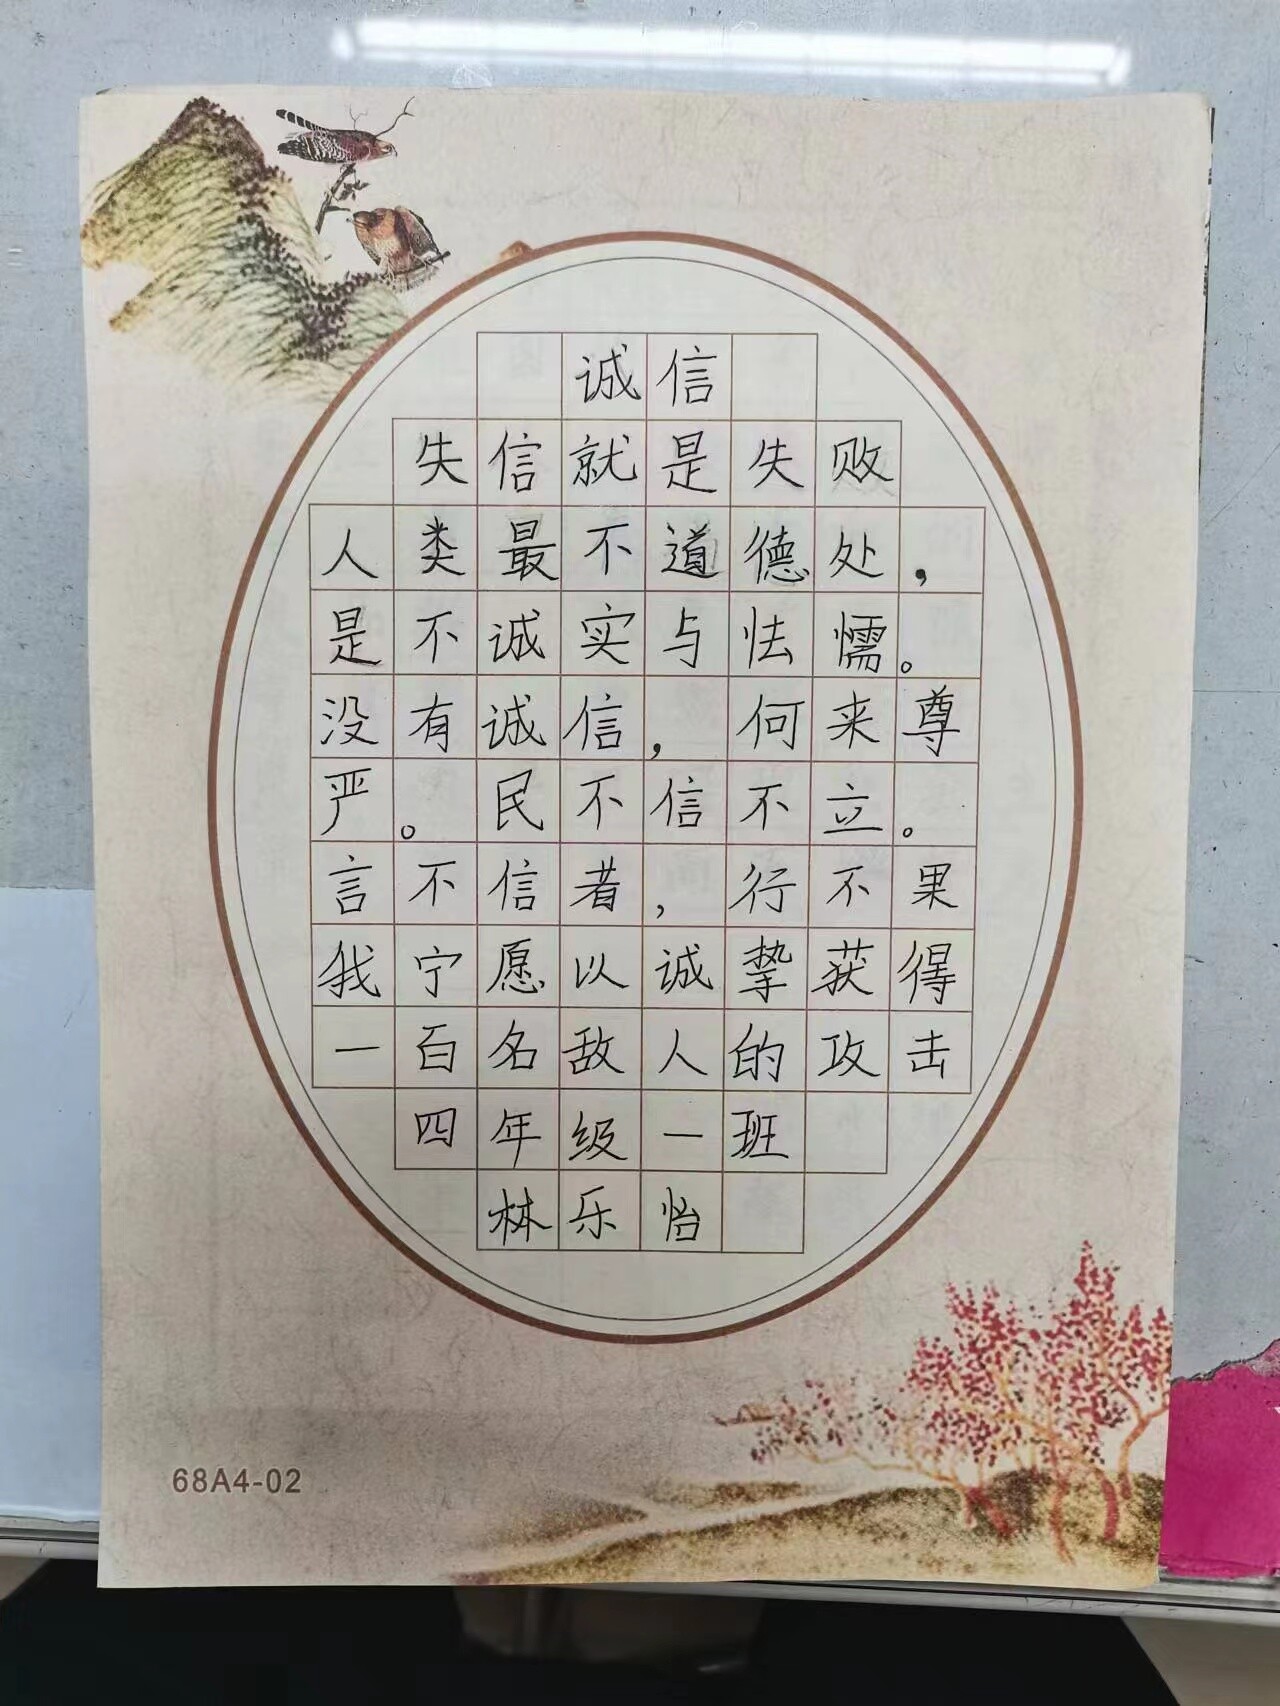 诚信
失信就是失败
人类最不道德处，
是不诚实与怯懦。
没有诚信，何来尊
严。民不信不立。
言不信者，行不果
我宁愿以诚挚获得
一百名敌人的攻击
四年级一班
林乐怡
68A4-02